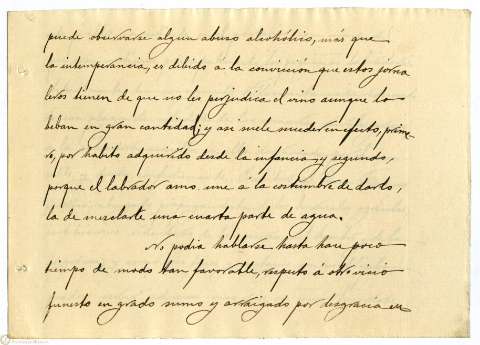 puede observarse algun abuso alcohólico, más que
la intemperancia, es debido á la convicción que estos jorna
leros tienen de que no les perjudica el vino aunque lo
beban en gran cantidad; y asi suele suceder en efecto, prime-
ro, por habito adquirido desde la infancia, y segundo,
porque el labrador amo une á la costumbre de darlo,
la de mezclarle una cuarta parte de agua.
No podia hablarse hasta hace poco
tiempo de modo tan favorable, respecto á otro vicio
funesto en grado sumo y arraigado por desgracia en